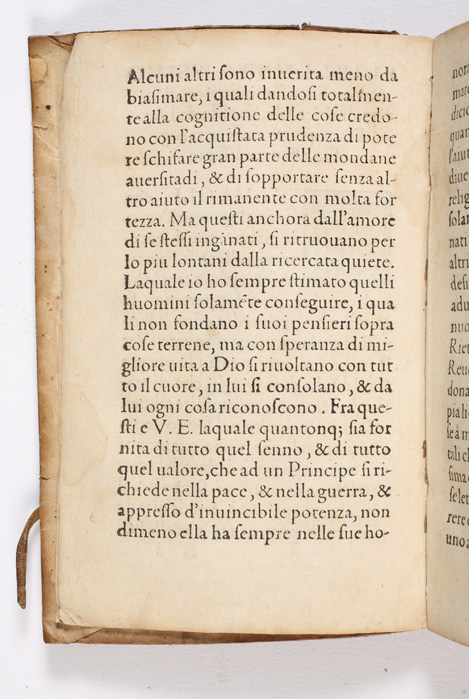 Alcuni altri ſono inuerita meno da
biaſimare, i quali dandoſi totalmen-
te alla cognitione delle coſe credo-
no con l'acquiſtata prudenza di pote
re ſchifare gran parte delle mondane
auerſitadi, & di ſopportare ſenza al-
tro aiuto il rimanente con molta for
tezza. Ma queſti anchora dall'amore
di ſe ſteſſi ingānati, ſi ritruouano per
lo piu lontani dalla ricercata quiete.
Laquale io ho ſempre ſtimato quelli
huomini ſolamēte conſeguire, i qua
li non fondano i ſuoi penſieri ſopra
coſe terrene, ma con ſperanza di mi-
gliore uita a Dio ſi riuoltano con tut
to il cuore, in lui ſi conſolano, & da
lui ogni coſa riconoſcono. Fra que-
ſti e V. E. laquale quantonq; ſia for
nita di tutto quel ſenno, & di tutto
quel ualore, che ad un Principe ſi ri-
chiede nella pace, & nella guerra, &
appreſſo d'inuincibile potenza, non
dimeno ella ha ſempre nelle ſue ho-